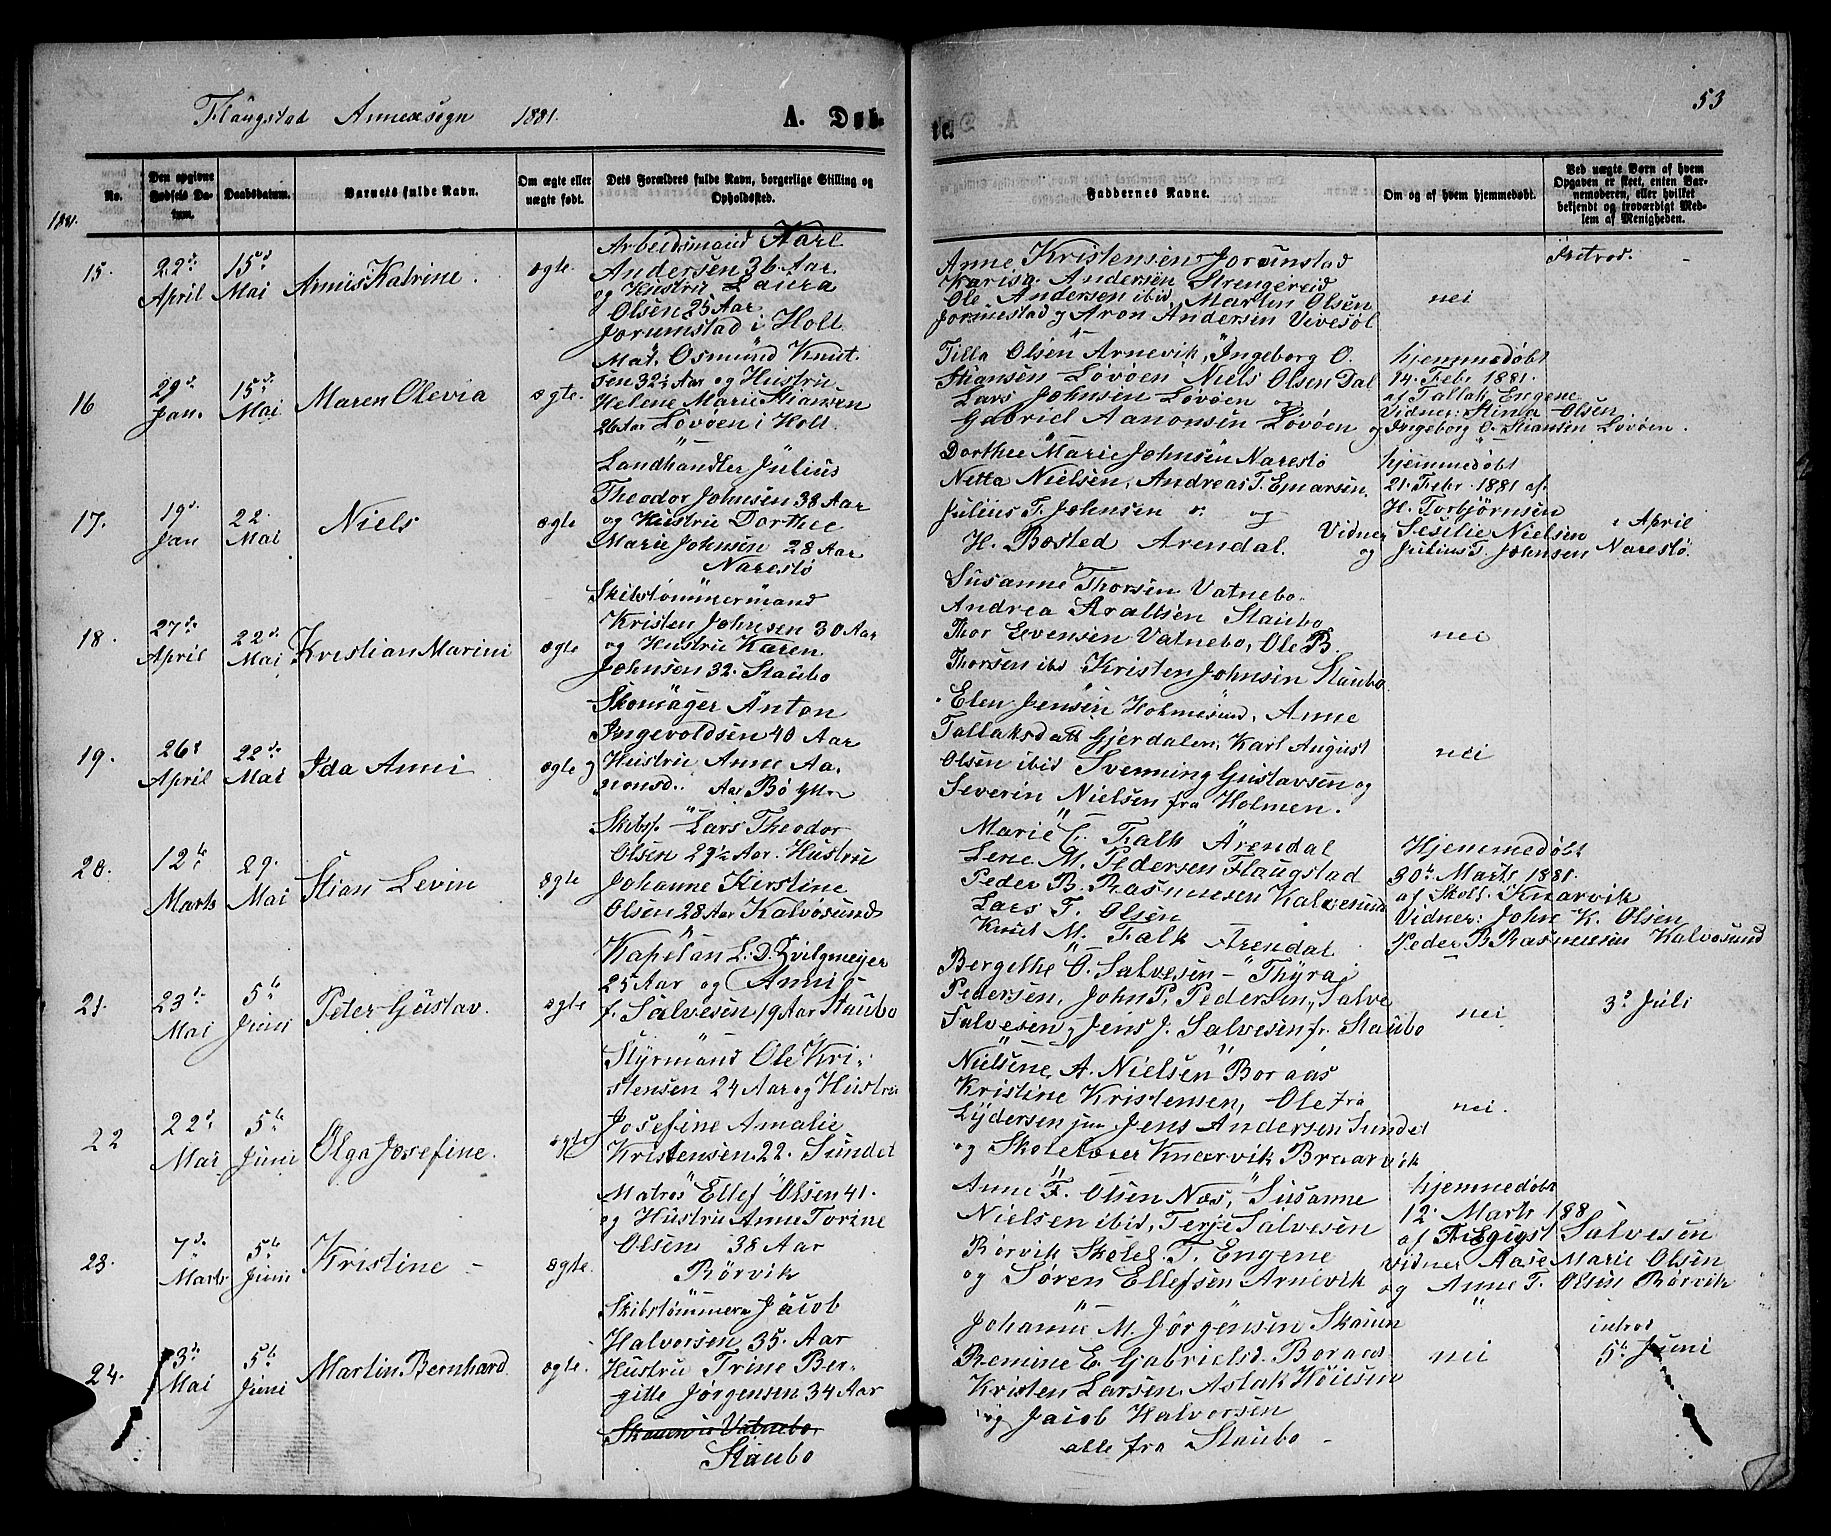 Flaugstad Annexsogn 1881.
A. Døb-
te.
53
No.
Den opgivne Fødsels Datum.
Daabsdatum.
Barnets fulde Navn.
Om ægte eller uægte født.
Dets Forældres fulde Navn, borgerlige Stilling og Opholdssted.
Faddernes Navne.
Om og af hvem hjemmedøbt.
Ved uægte Børn af hvem Opgaven er skeet, enten Barnemoderen, eller hvilket bekjendt og troværdigt Medlem af Menigheden.
1881.
15.
22d April
15d Mai
Katrine.
ægte.
Arbeidsmand Karl
Andersen 36 Aar.
og Hustru Laura
Olsen 25 Aar
Jorumstad i Holt
Anne Kristensen Jorunstad
Andersen Strengereid
Ole Andersen ibid, Martin Olsen
og Aron Andersen Vivesøl
nei
Introd.
16
29d Jan.
15d Mai
Maren Olevia
ægte.
Mat. Osmund Knut-
sen 32½ Aar og Hustru
Helene Marie Stiansen
26 Aar Løvøen i Holt
Tilla Olsen Arnevik, Ingeborg O.
Stiansen Løvøen Niels Olsen Dal
Lars Johnsen Løvøen og
Gabriel Aanonsen Løvøen
hjemmedøbt
14. Febr 1881.
af Tallak Engene
Vidner: Olsen
og Ingeborg O. Stiansen Løvøen.
17.
19d. Jan
22. Mai
Niels
ægte
Landhandler Julius
Theodor Johnsen 38 Aar
og Hustru Dorthee
Marie Johnsen 28 Aar
Narestø
Dorthee Marie Johnsen Narestø
Netta Nielsen, Andreas T. Emarsen.
Julius T. Johnsen og
H. Bosted Arendal.
hjemmedøbt
21. Febr. 1881 af
H. Torbjørnsen
Vidner Sesilie Nielsen
og Julius T. Johnsen Narestø.
April
18.
27d April
22d Mai
Kristian Marini
ægte
Skibstømmermand
Kristen Johnsen 30 Aar
og Hustru Karen
Johnsen 32. Staubo
Susanne Thorsen Vatnebo.
Andrea Staubo
Thor Evensen Vatnebo, Ole B.
Thorsen ibid Kristen Johnsen Staubo
nei
19.
26d April
22d. Mai
Ida Anni
ægte
Skomager Anton
Ingevoldsen 40 Aar
og Hustru Anne Aa-
nonsd. Aar Bø
Elen Jensen Holmesund, Anne
Tallaksdatt Gjerdalen, Karl August
Olsen ibid Svenning Gustavsen og
Severin Nielsen fra Holmen.
nei
20.
12te Marts
29. Mai
Stian Levin
ægte
Skibsf. Lars Theodor
Olsen 29½ Aar. Hustru
Johanne Kirstine
Olsen 28 Aar Kalvøsund
Marie C. Falk Arendal
Lene M. Pedersen Flaugstad
Peder B. Rasmussen Kalvøsund
Lars T. Olsen
Knut M. Falk Arendal
Hjemmedøbt
30d. Marts 1881.
af Skoll. Knarvik
Vidner: John K. Olsen
Peder B Rasmussen Kalvøsund
21.
23d Mai
5te Juni
Peter Gustav.
ægte
Kapelan L. D. Zvilgmeyer
25 Aar og Anni
f. Salvesen 19 Aar Staubo
Bergethe O. Salvesen - Thyra
Pedersen, John P. Pedersen, Salve
Salvesen og Jens J. Salvesen fr. Staubo
nei
3d Juli
22
22d Mai
5te Juni
Olga Josefine.
ægte
Styrmand Ole Kri-
stensen 24 Aar og Hustru
Josefine Amalie
Kristensen. 22. Sundet
Nielsine A. Nielsen Boraas
Kristine Kristensen, Ole fra
Lydersen jun Jens Andersen Sundet
og Skolelærer Knarvik Braarvik
nei.
23.
7d. Marts
5te Juni
Kristine -
ægte.
Matros Ellef Olsen 41.
og Hustru Anne Torine
Olsen 38 Aar
Rørvik
Anne F. Olsen Næs, Susanne
Nielsen ibid, Terje Salvesen
Rørvik Skolel. T. Engene
og Søren Ellefsen Arnevik
hjemmedøbt
12. Marts 188
af Salvesen
Vidner Aase Marie Olsen
og Anne T. Olsen Rørvik
24.
3de Mai
5te Juni
Martin Bernhard.
ægte.
Skibstømmerm Jacob
Halvorsen 35. Aar
Hustru Trine Ber-
gitte Jørgensen 34 Aar
Vatnebo
Staubo
Johanne M. Jørgensen
E. Gabrielsd. Boraas
Kristen Larsen, Aslak
og Jacob Halvorsen
alle fra Staubo -
nei
introd
5te Juni